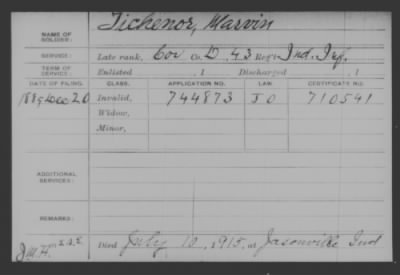 Tichenor, Marvin
NAME OF SOLDIER:
SERVICE: Late rank, Cor Co. D, 43 Reg't Ind. Inf.
TERM OF SERVICE: Enlisted , 1 Discharged , 1
DATE OF FILING. CLASS. APPLICATION NO. LAW. CERTIFICATE NO.
1889 Dec 20 Invalid, 744873 710541
Widow,
Minor,
ADDITIONAL SERVICES:
REMARKS:
Died July 10, 1915, at Jasonville Ind